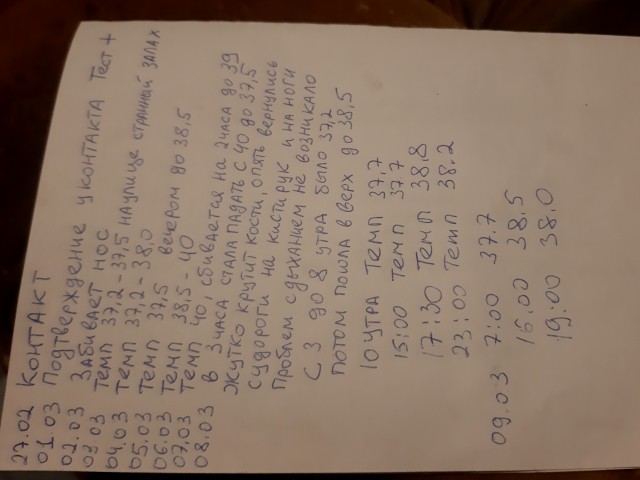 27.02 КОНТАКТ
01.03 Подтверждение у контакта Тест +
02.03 Забивает нос
03.03 Темп 37,2-37,5 на улице странный запах
04.03 Темп 37,2-38,0
05.03 Темп 37,5 вечером до 38,5
06.03 Темп 38,5-40
07.03 Темп 40, сбивается на 2 часа до 39
08.03 в 3 часа стала падать с 40 до 37,5
Жутко крутит кости, опять вернулись
Судороги на кисти рук и на ноги
Проблем с дыханием не возникало
С 3 до 8 утра было 37,2
потом пошла вверх до 38,5
10 утра Темп 37,7
15:00 Темп 37.7
17:30 Темп 38,8
23:00 Темп 38.2
09.03 7:00 37.7
16.00 38.5
19:00 38.0